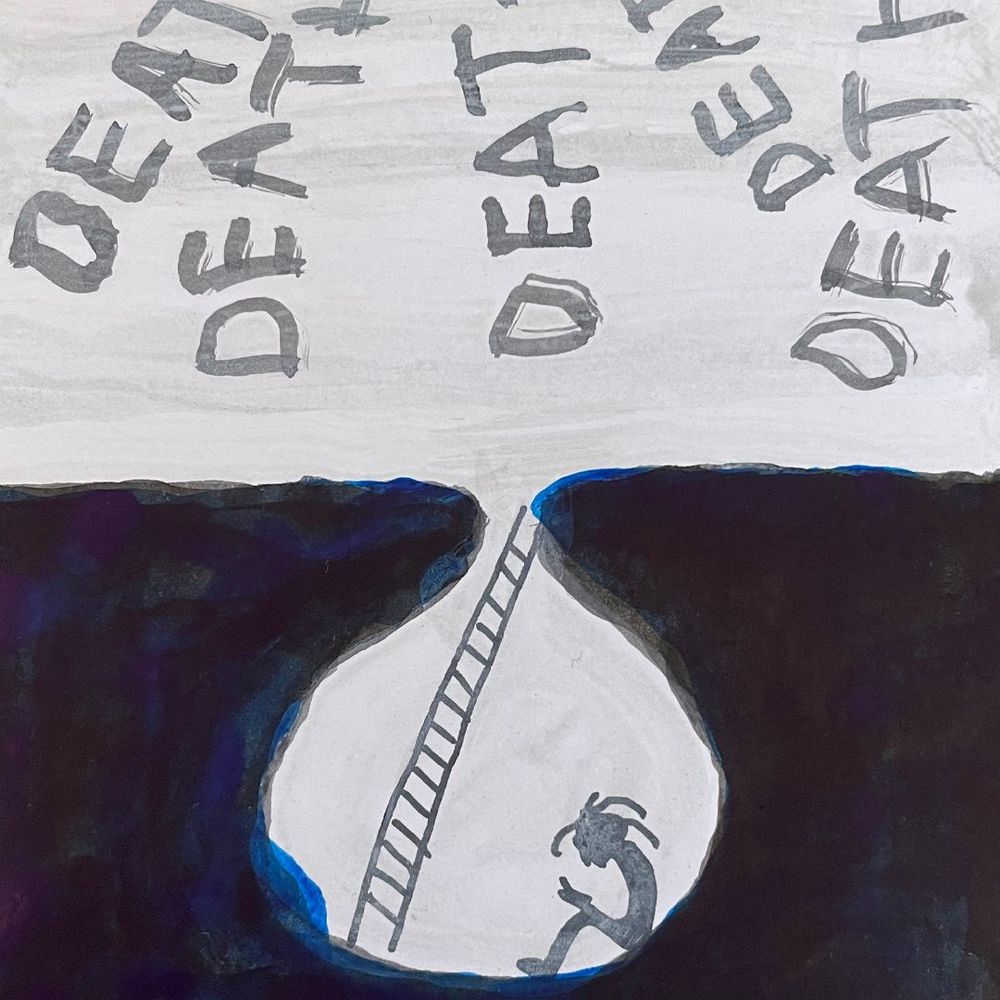 DEAT
DEAT
DEAT
DEA
DEAT